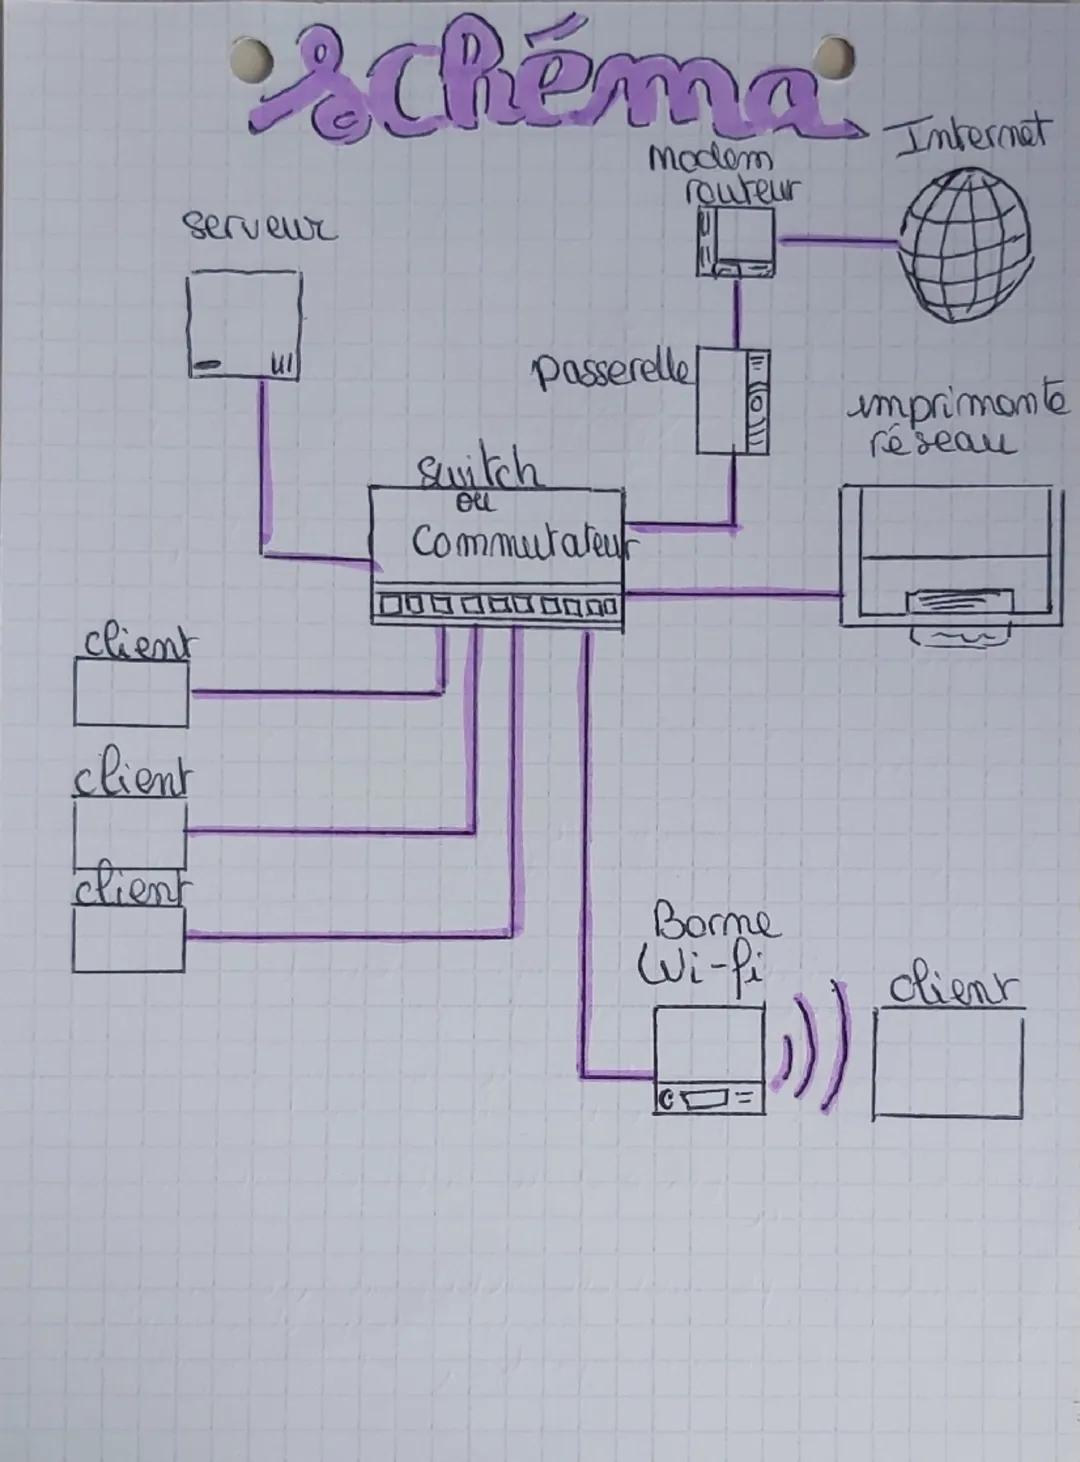 Schéma
Internet
Modem
routeur
serveur
passerelle
imprimante
réseau
switch
ou
Commutateur
client
client
client
Borne
Wi-fi
client